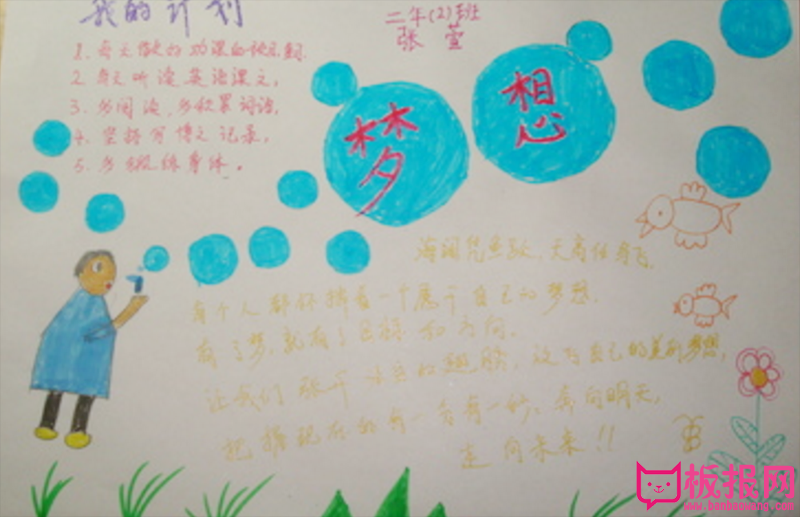 我的计划
二年(2)班
张萱
1. 每天做好功课
2. 每天听读英语课文,
3. 多阅读,多积累词语,
4. 坚持写博文记录,
5. 多锻练身体。
梦想
海阔凭鱼跃,天高任鸟飞
有个人都怀揣着一个属于自己的梦想.
有了梦,就有了目标和方向.
让我们张开 的翅膀, 为自己的美丽梦想,
把握现在的每一分每一妙, 奔向明天,
走向未来!!
板报网
www.banbaowang.com